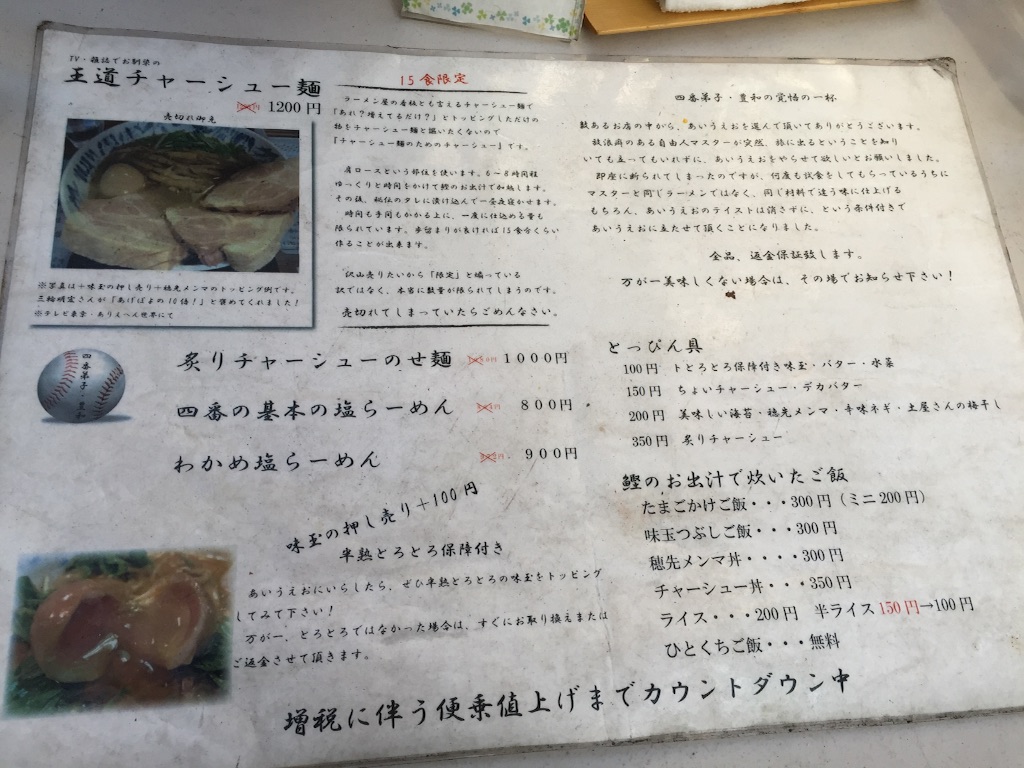 TV・雑誌でお馴染の
王道チャーシュー麺
1200円
売切れ御免
※写真は+味玉の押し売り+穂先メンマのトッピング例です。
三輪明宏さんが「あげぱよの10倍!」と褒めてくれました!
※テレビ東京・ありえへん世界にて
15食限定
ラーメン屋の看板とも言えるチャーシュー麺で
「あれ?増えてるだけ?」とトッピングしただけの
物をチャーシュー麺と謳いたくないので
『チャーシュー麺のためのチャーシュー』です。
肩ロースという部位を使います。6~8時間程
ゆっくりと時間をかけて鰹のお出汁で加熱します。
その後、秘伝のタレに漬け込んで一昼夜寝かせます。
時間も手間もかかる上に、一度に仕込める量も
限られています。歩留まりが良ければ15食分くらい
作ることが出来ます。
沢山売りたいから「限定」と煽っている
訳ではなく、本当に数量が限られてしまうのです。
売切れてしまっていたらごめんなさい。
四番弟子・豊和の覚悟の一杯
数あるお店の中から、あいうえおを選んで頂いてありがとうございます。
放浪癖のある自由人マスターが突然、旅に出るということを知り
いても立ってもいれずに、あいうえおをやらせて欲しいとお願いしました。
即座に断られてしまったのですが、何度も試食をしてもらっているうちに
マスターと同じラーメンではなく、同じ材料で違う味に仕上げる
もちろん、あいうえおのテイストは消さずに、という条件付きで
あいうえおに立たせて頂くことになりました。
全品、返金保証致します。
万が一美味しくない場合は、その場でお知らせ下さい!
四番弟子・豊和
炙りチャーシューのせ麺 1000円
四番の基本の塩らーめん 800円
わかめ塩らーめん 900円
味玉の押し売り+100円
半熟とろとろ保障付き
あいうえおにいらしたら、ぜひ半熟とろとろの味玉をトッピング
してみて下さい!
万が一、とろとろではなかった場合は、すぐにお取り換えまたは
ご返金させて頂きます。
とっぴん具
100円 トとろとろ保障付き味玉・バター・水菜
150円 ちょいチャーシュー・デカバター
200円 美味しい海苔・穂先メンマ・辛味ネギ・土屋さんの梅干し
350円 炙りチャーシュー
鰹のお出汁で炊いたご飯
たまごかけご飯・・・300円(ミニ200円)
味玉つぶしご飯・・・300円
穂先メンマ丼・・・・300円
チャーシュー丼・・・350円
ライス・・・200円 半ライス150円→100円
ひとくちご飯・・・無料
増税に伴う便乗値上げまでカウントダウン中